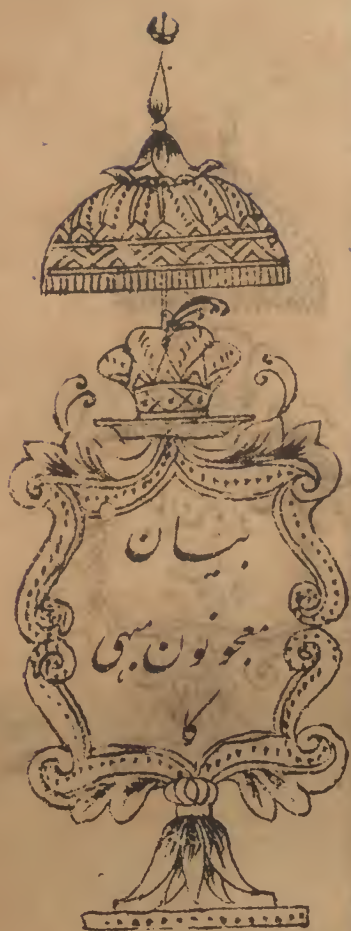 بیان
معجونون مبہی
کا